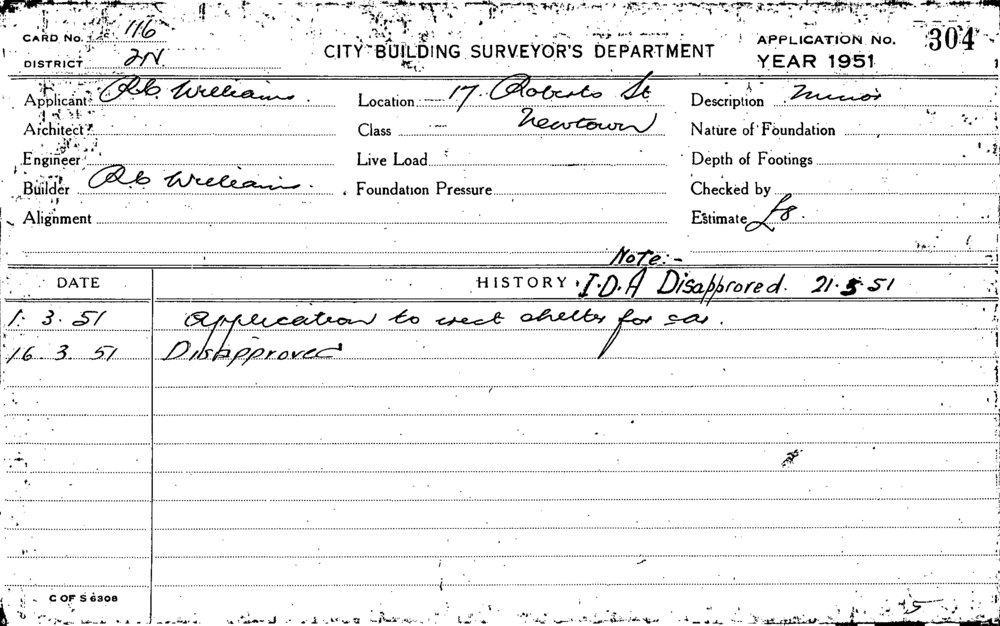 CARD No. 116
CITY BUILDING SURVEYOR'S DEPARTMENT
APPLICATION No. 304
DISTRICT 2N.
YEAR 1951
Applicant Williams Location 17. Roberts St Description Minor
Architect Class Newtown Nature of Foundation
Engineer Live Load Depth of Footings
Builder Williams. Foundation Pressure Checked by
Alignment Estimate £8.
Note:-
DATE HISTORY I.D.A Disapproved. 21.5.51
1. 3. 51 Application to erect shelter for car.
16. 3. 51 Disapproved
C OF S 6308